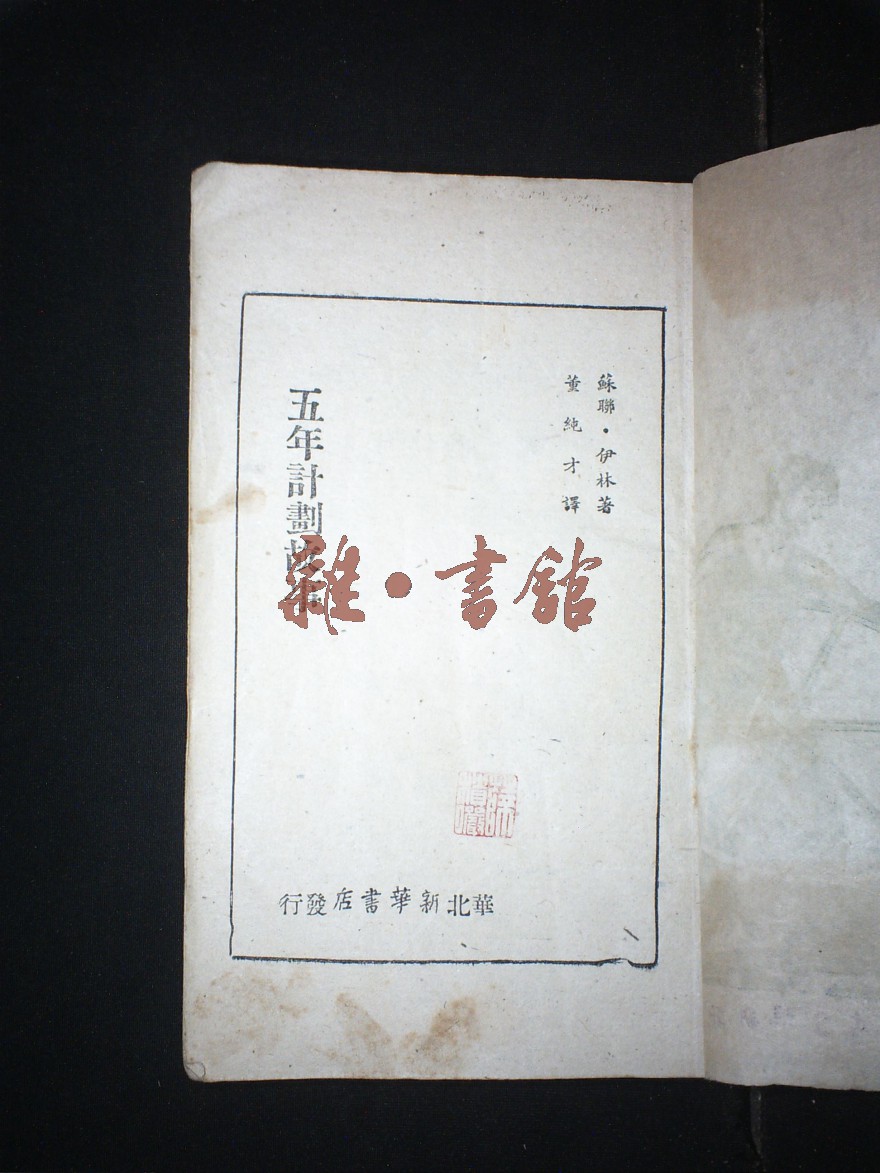 蘇聯・伊林著
董純才譯
五年計劃故事
雜・書館
華北新華書店發行